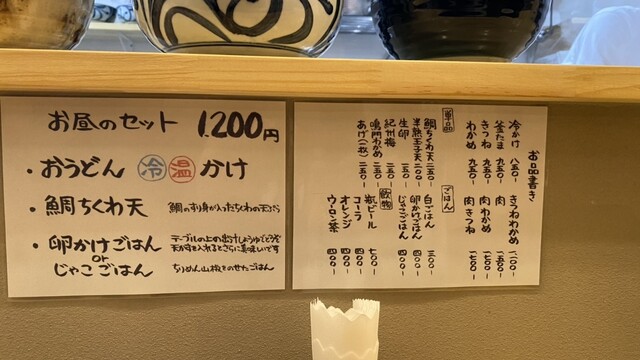 お昼のセット 1.200円
・おうどん 冷 温 かけ
・鯛ちくわ天 鯛のすり身が入ったちくわの天ぷら
・卵かけごはん テーブルの上の出汁しょうゆをどうぞ
天かすを入れるとさらに美味しいです
or
じゃこごはん ちりめん山椒をのせたごはん
お品書き
冷かけ 八五〇- きつねわかめ 一一〇〇-
釜たま 九五〇- 肉 一五〇〇-
きつね 九五〇- 肉わかめ 一七〇〇-
わかめ 九五〇- 肉きつね 一七〇〇-
単品
鯛ちくわ天 二五〇-
半熟玉子天 二〇〇-
生卵
紀州梅
鳴門わかめ 二五〇-
あげ(二枚) 二五〇-
ごはん
白ごはん 三〇〇-
卵かけごはん 四〇〇-
じゃこごはん 四〇〇-
飲物
瓶ビール 七〇〇-
コーラ 四〇〇-
オレンジ 四〇〇-
ウーロン茶 四〇〇-